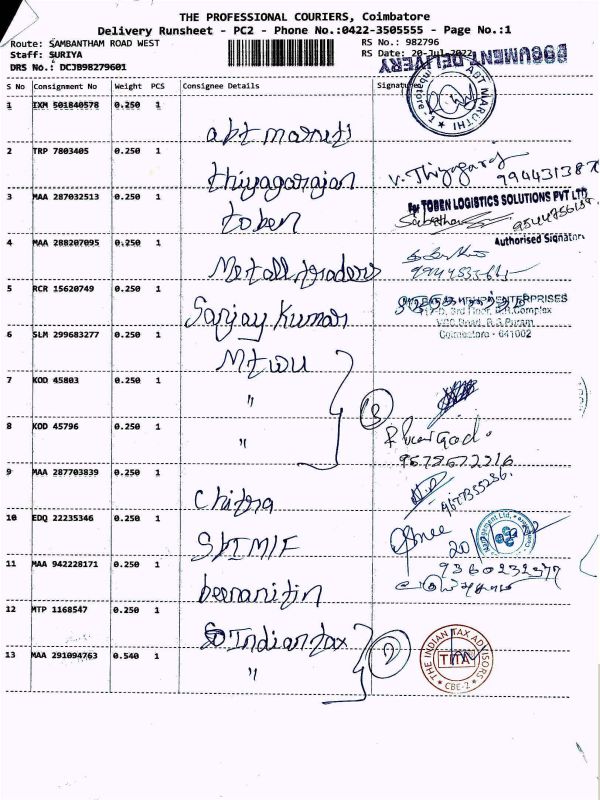 THE PROFESSIONAL COURIERS, Coimbatore
Delivery Runsheet - PC2 - Phone No.:0422-3505555 - Page No.:1
Route: SAMBANTHAM ROAD WEST
RS No.: 982796
Staff: SURIYA
RS Date: 20-Jul-2022
DOCUMENT DELIVERY
DRS No.: DCJB98279601
S No Consignment No Weight PCS Consignee Details Signature
1 IXM 501840578 0.250 1
abt maruti
ABT MARUTHI
2 TRP 7803405 0.250 1
thiyagarajan
V. Thiyagaraj
3 MAA 287032513 0.250 1
toben
For TOBEN LOGISTICS SOLUTIONS PVT LTD
Authorised Signatory
4 MAA 288207095 0.250 1
Metall traders
5 RCR 15620749 0.250 1
Sanjay Kumar
ENTERPRISES
3rd Floor,
Complex
R.S.Puram
Coimbatore - 641002
6 SLM 299683277 0.250 1
7 KOD 45803 0.250 1
"
8 KOD 45796 0.250 1
"
9 MAA 287703839 0.250 1
Chithra
10 EDQ 22235346 0.250 1
SBIMF
11 MAA 942228171 0.250 1
12 MTP 1168547 0.250 1
Indian tax
2
13 MAA 291094763 0.540 1
"
THE INDIAN TAX ADVISORS
TITA
CBE-2